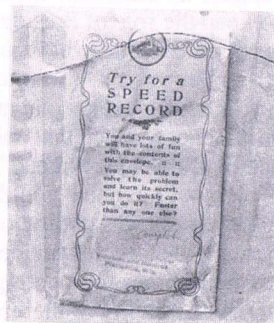 Try for a
SPEED
RECORD
You and your family
will have lots of fun
with the contents of
this envelope.
You may be able to
solve the problem
and learn its secret,
but how quickly can
you do it? Faster
than any one else?